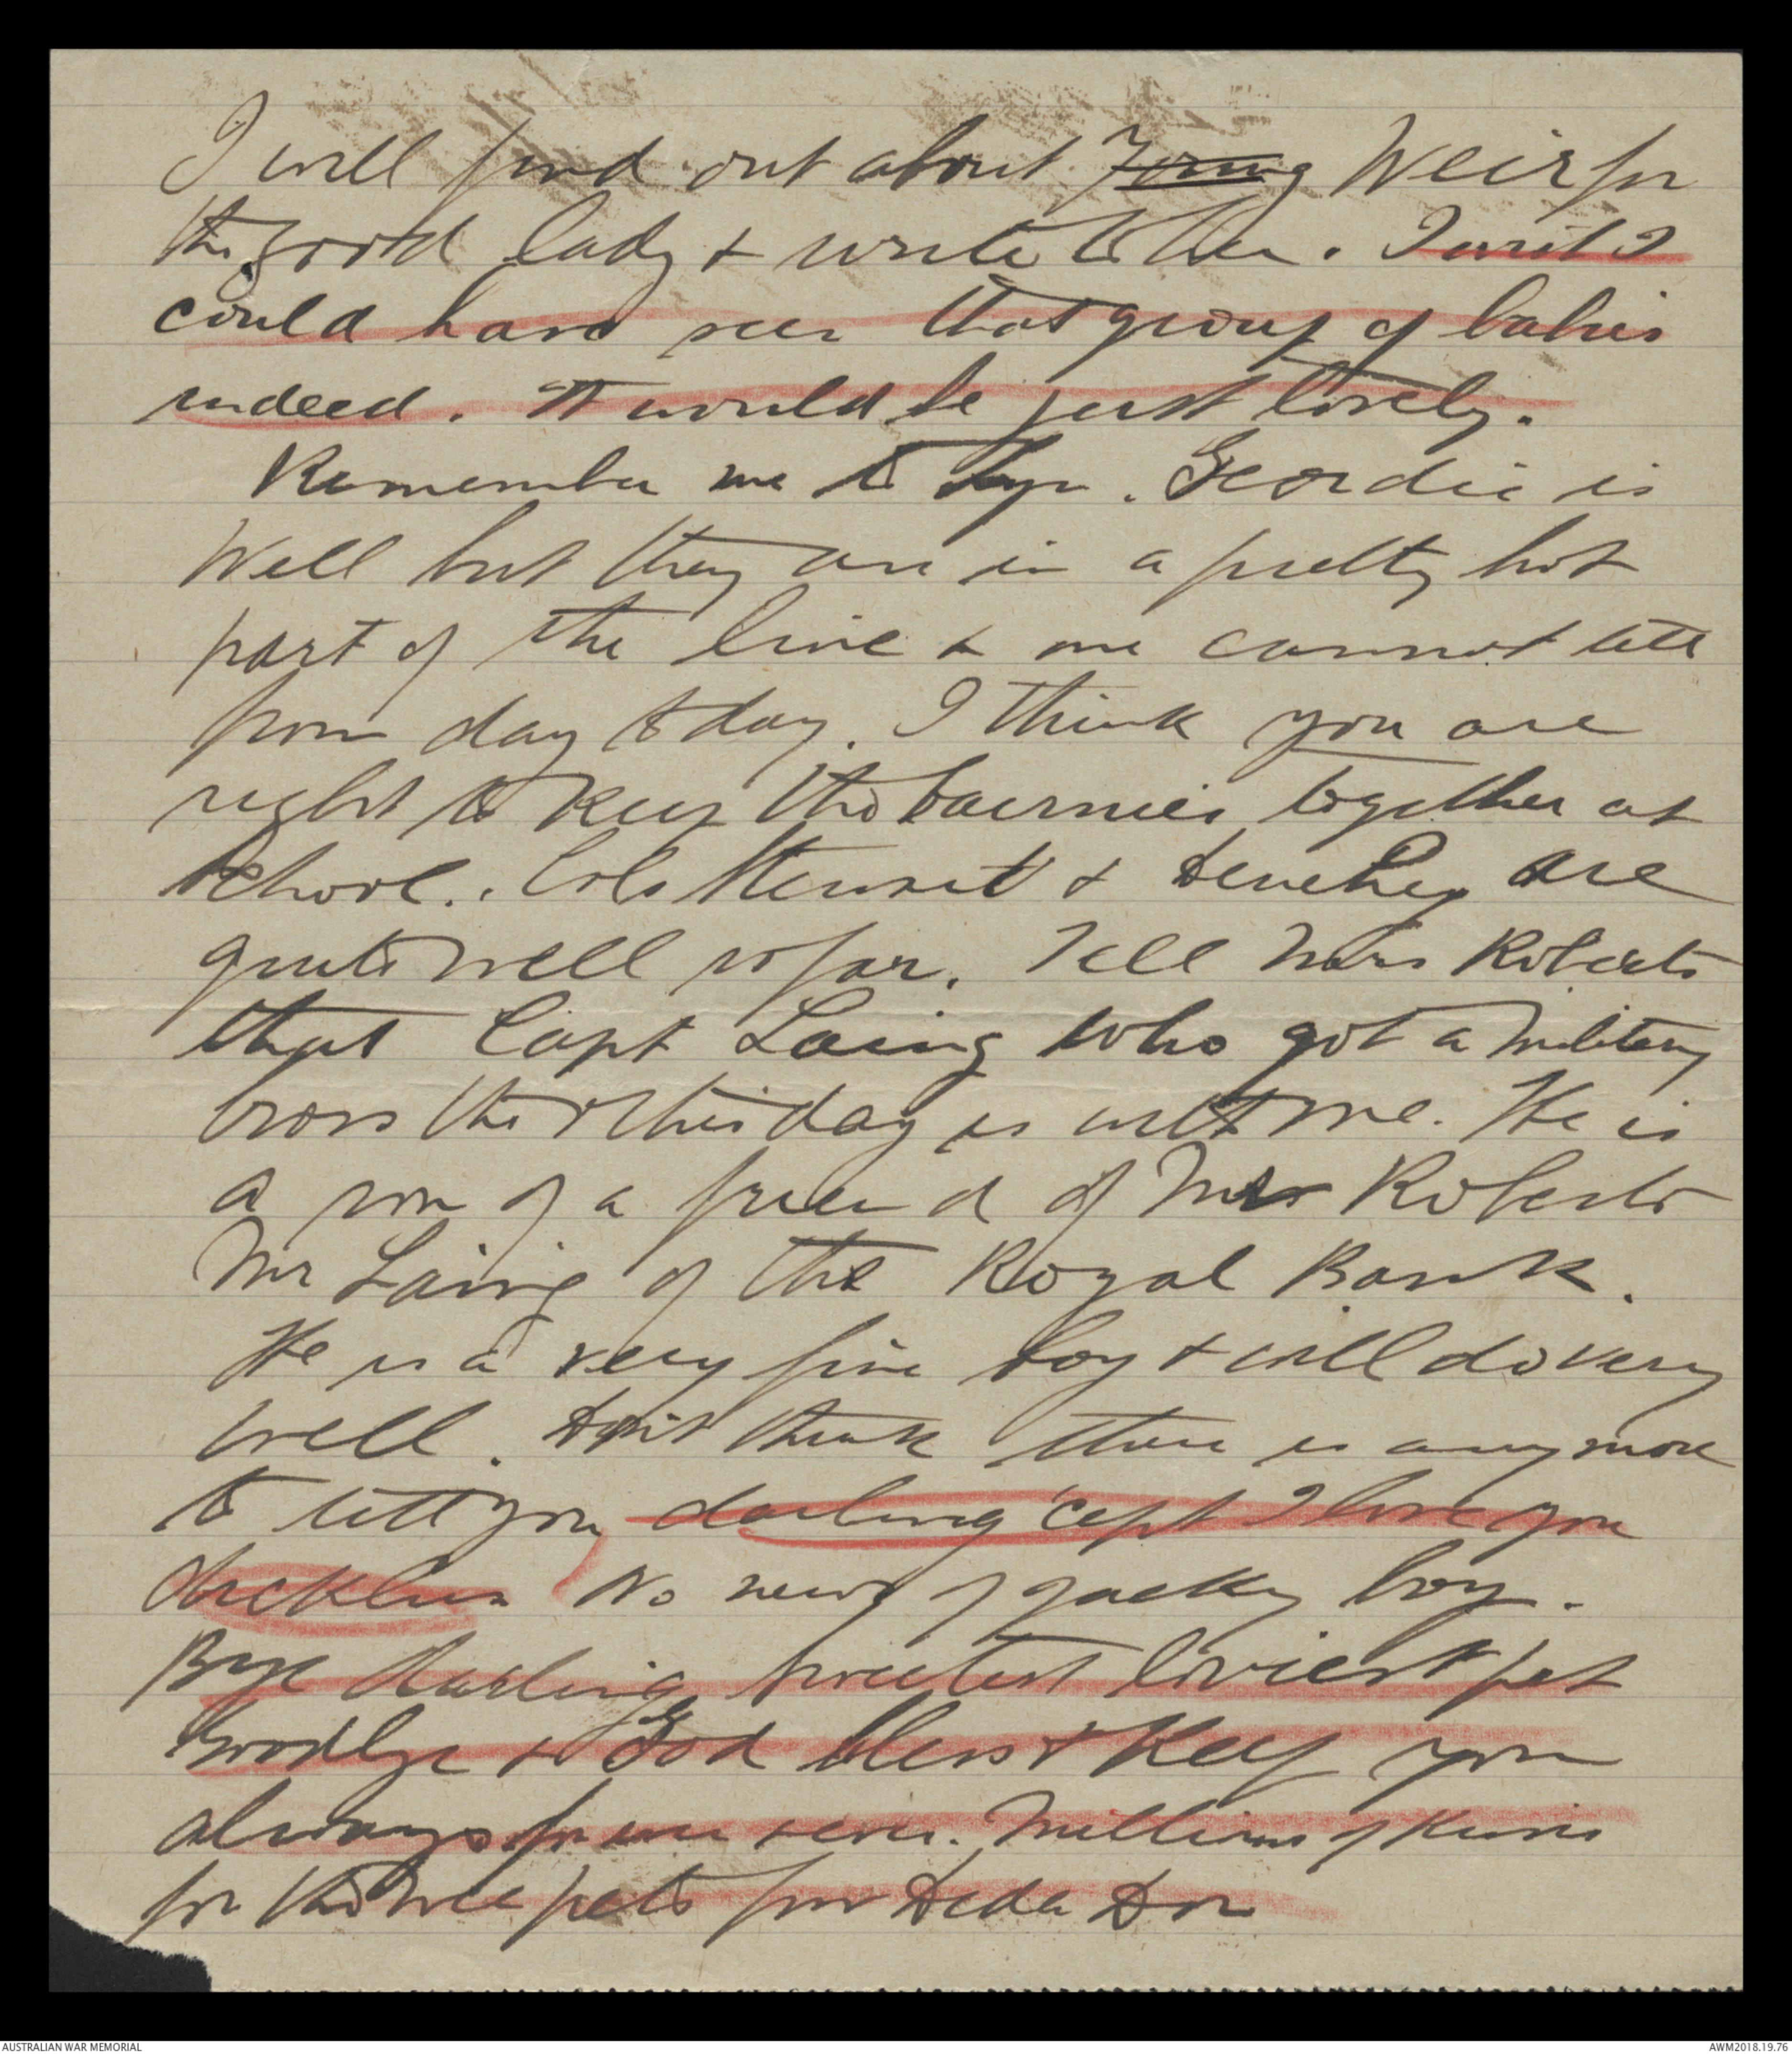 I will find out about Young Weir for
the good lady & write to her. I wish I
could have seen that group of babies
indeed. It would be just lovely.
Remember me to Geordie is
Well but they are in a pretty hot
part of the line & one cannot tell
from day to day. I think you are
right to keep the bairnies together at
School. Cols Stewart & are
quite well so far. Tell Mrs Roberts
that Capt Laing who got a Military
Cross the other day is with me. He is
a son of a friend of Mrs Roberts
Mr Laing of the Royal Bank.
He is a very fine boy & will do very
well. Don't think there is any more
to tell you darling 'cept I love you
No news of Jacky boy.
Bye darling sweetest loviest pet
Goodbye & God bless & Keep you
always for ever & ever. Millions of kisses
for the wee pets from Dida Don
AUSTRALIAN WAR MEMORIAL
AWM2018.19.76